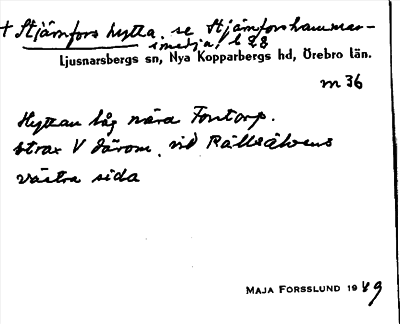 † Stjärnfors hytta, se Stjärnforshammar-
smedja, b 28
Ljusnarsbergs sn, Nya Kopparbergs hd, Örebro län.
m 36
Hyttan låg nära Fontorp.
strax V därom, vid Rällsälvens
västra sida
MAJA FORSSLUND 1949